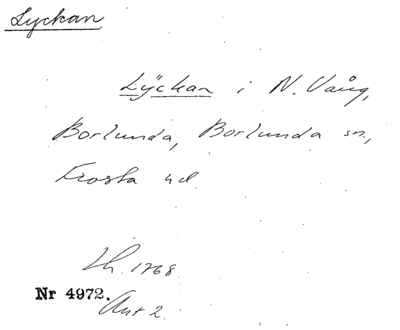 Lyckan
Lÿckan i N. Vång,
Borlunda, Borlunda sn.,
Frosta hd
Lh. 1768
Nr 4972.
Akt 2